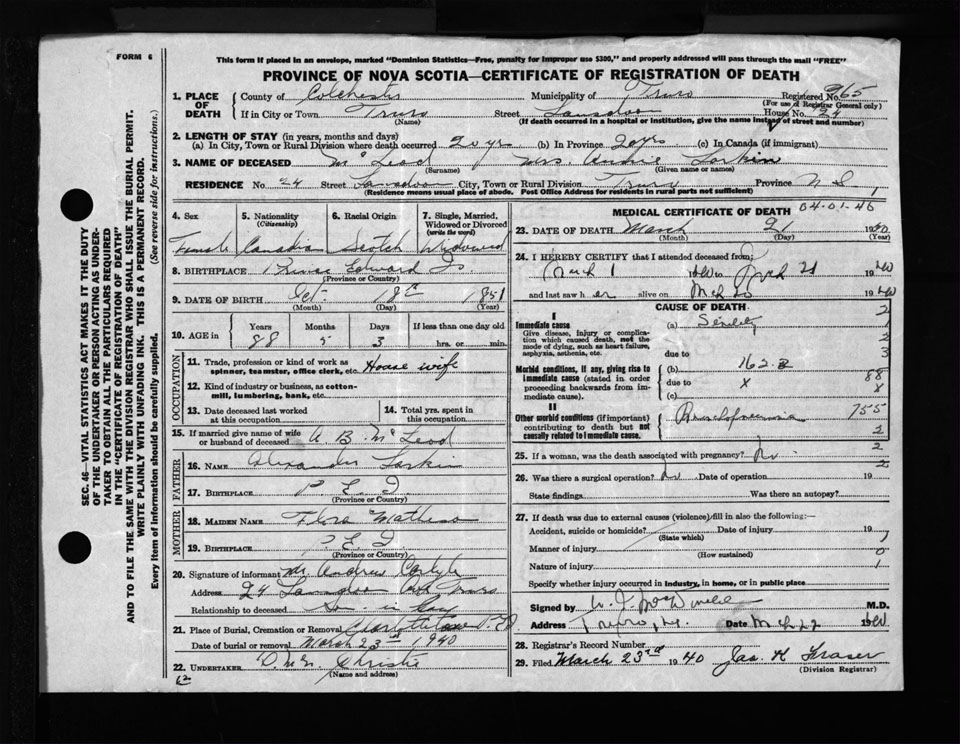 FORM 6
This form if placed in an envelope, marked "Dominion Statistics—Free, penalty for improper use $300," and properly addressed will pass through the mail "FREE"
PROVINCE OF NOVA SCOTIA—CERTIFICATE OF REGISTRATION OF DEATH
1. PLACE OF DEATH County of Colchester Municipality of Truro Registered No. 265
(For use of Registrar General only)
If in City or Town Truro Street House No. 24
(Name) (If death occurred in a hospital or institution, give the name instead of street and number)
2. LENGTH OF STAY (in years, months and days)
(a) In City, Town or Rural Division where death occurred 20 yrs (b) In Province 20 yrs (c) In Canada (if immigrant)
3. NAME OF DECEASED McLeod Mrs. Annie Larkin
(Surname) (Given name or names)
RESIDENCE No. 24 Street City, Town or Rural Division Truro Province N.S.
(Residence means usual place of abode. Post Office Address for residents in rural parts not sufficient)
4. Sex 5. Nationality (Citizenship) 6. Racial Origin 7. Single, Married, Widowed or Divorced (write the word)
Female Canadian Scotch Widowed
8. BIRTHPLACE Prince Edward Is.
(Province or Country)
9. DATE OF BIRTH Oct. 18 1851
(Month) (Day) (Year)
10. AGE in Years Months Days If less than one day old
88 5 3 hrs. or min.
OCCUPATION
11. Trade, profession or kind of work as spinner, teamster, office clerk, etc. House wife
12. Kind of industry or business, as cotton-mill, lumbering, bank, etc.
13. Date deceased last worked at this occupation 14. Total yrs. spent in this occupation
15. If married give name of wife or husband of deceased A. B. McLeod
FATHER
16. NAME Alexander Larkin
17. BIRTHPLACE P. E. I.
(Province or Country)
MOTHER
18. MAIDEN NAME Flora
19. BIRTHPLACE P. E. I.
(Province or Country)
20. Signature of informant Mr. Andrew Carlyle
Address 24 Truro
Relationship to deceased Son-in-law
21. Place of Burial, Cremation or Removal Charlottetown
Date of burial or removal March 23rd 1940
22. UNDERTAKER Christie
(Name and address)
MEDICAL CERTIFICATE OF DEATH
04-01-46
23. DATE OF DEATH March 21 1940
(Month) (Day) (Year)
24. I HEREBY CERTIFY that I attended deceased from
March 1 1940 to March 21 1940
and last saw her alive on Mch 20 1940
CAUSE OF DEATH
I
Immediate cause (a) Senility
Give disease, injury or complication which caused death, not the mode of dying, such as heart failure, asphyxia, asthenia, etc.
due to
Morbid conditions, if any, giving rise to immediate cause (stated in order proceeding backwards from immediate cause). (b) 162.B
due to x
(c)
II
Other morbid conditions (if important) contributing to death but not causally related to immediate cause. Bronchopneumonia
2
1
2
3
88
x
755
2
2
2
7
0
1
25. If a woman, was the death associated with pregnancy? No
26. Was there a surgical operation? No Date of operation 19
State findings Was there an autopsy?
27. If death was due to external causes (violence) fill in also the following:—
Accident, suicide or homicide? Date of injury 19
(State which)
Manner of injury
(How sustained)
Nature of injury
Specify whether injury occurred in industry, in home, or in public place
Signed by M.D.
Address Truro, Date Mch 22 1940
28. Registrar's Record Number
29. Filed March 23rd 1940 Jas. H. Fraser
(Division Registrar)
SEC. 46—VITAL STATISTICS ACT MAKES IT THE DUTY
OF THE UNDERTAKER OR PERSON ACTING AS UNDERTAKER
TO OBTAIN ALL THE PARTICULARS REQUIRED
IN THE "CERTIFICATE OF REGISTRATION OF DEATH"
AND TO FILE THE SAME WITH THE DIVISION REGISTRAR WHO SHALL ISSUE THE BURIAL PERMIT.
WRITE PLAINLY WITH UNFADING INK. THIS IS A PERMANENT RECORD.
Every item of information should be carefully supplied. (See reverse side for instructions.)